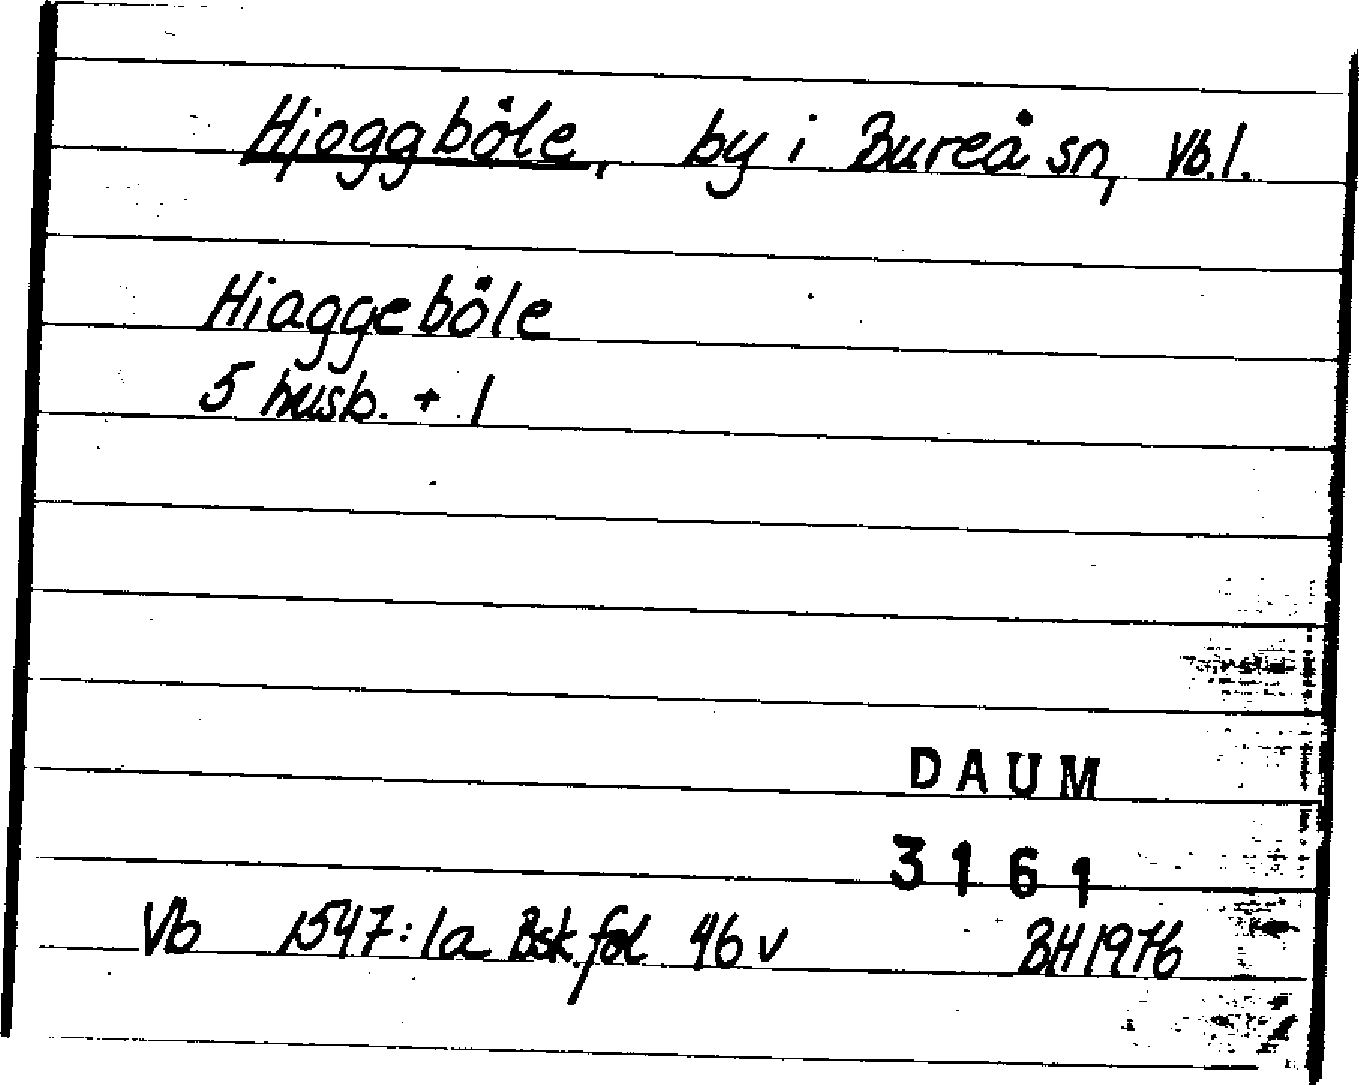 Hjoggböle, by i Bureå sn, Vb.l.
Hiaggeböle
5 husb. + 1
DAUM
3161
Vb 1547:1a Bsk. fol 46 v BH 1976